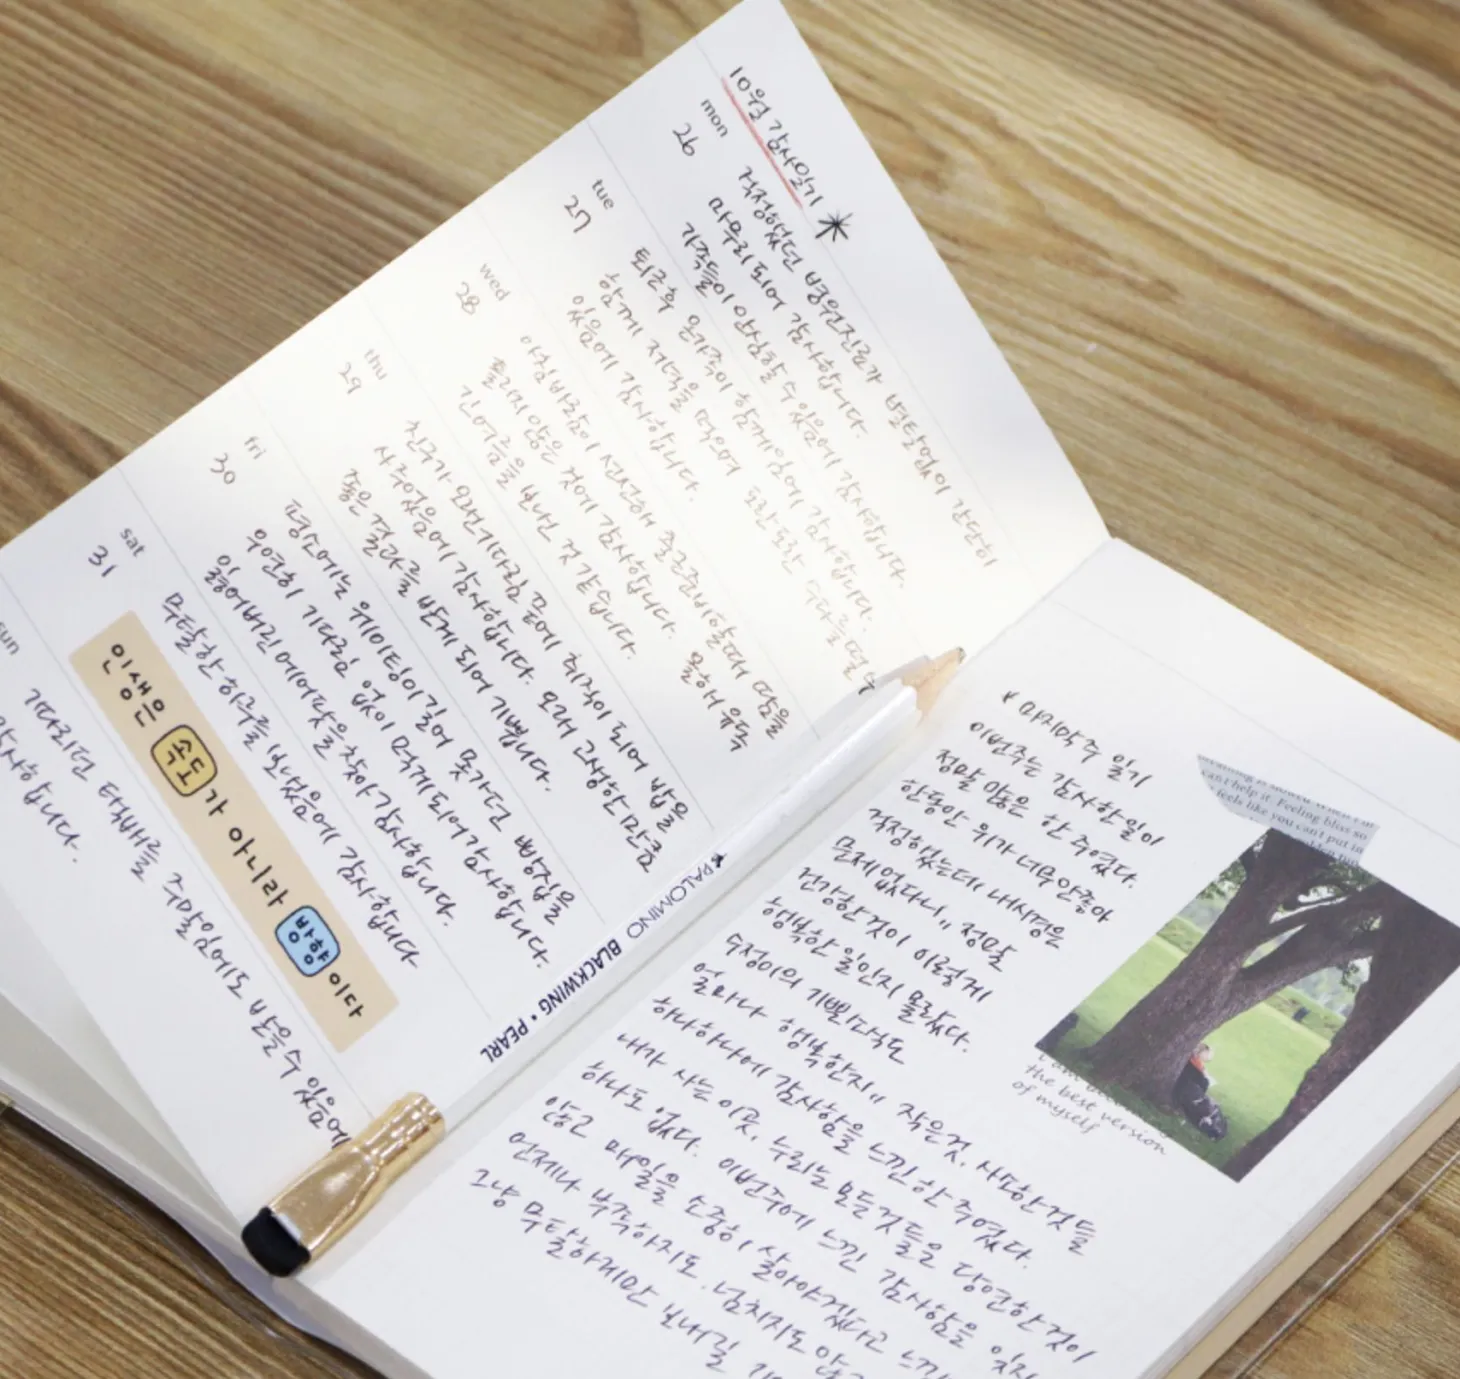 10월 감사일기
mon
26
걱정했던 병원진료가 별탈없이 간단히
마무리 되어 감사합니다.
가족들이 안심할 수 있음에 감사합니다.
tue
27
퇴근후 온가족이 함께임에 감사합니다.
함께 저녁을 먹으며 도란도란 수다를 떨 수
있음에 감사합니다.
wed
28
아침 바람이 선선해서 출근준비할때 땀을
흘리지 않은 것에 감사합니다. 통해서 푹
긴여름을 보낸 것 같습니다.
thu
29
친구가 오랜기다림 끝에 취직이 되어 밥을
사주었음에 감사합니다. 오래 고생한만큼
좋은 결과를 받게 되어 기쁩니다.
fri
30
평소에는 웨이팅이 길어 못가던 빵집을
우연히 기다림 없이 먹게되어 감사합니다.
잃어버린 에어팟을 찾아 감사합니다.
sat
31
무탈한 하루를 보냈음에 감사합니다
인생은 속도가 아니라 방향이다
sun
기다리던 택배를 주말임에도 받을 수 있음에
감사합니다.
PALOMINO BLACKWING • PEARL
마지막주 일기
이번주는 감사한 일이
정말 많은 한 주였다.
한동안 위가 너무 안좋아
걱정했었는데 내시경은
문제 없다니,, 정말
건강한 것이 이렇게
행복한 일인지 몰랐다.
수정이의 기쁜 소식도
얼마나 행복한지,, 작은것, 사소한 것들
하나하나에 감사함을 느낀 한 주였다.
내가 사는 이곳, 누리는 모든것들은 당연한 것이
하나도 없다. 이번주에 느낀 감사함을 잊지
않고 매일을 소중히 살아야겠다고 느낀
언제나 부족하지도, 넘치지도 않고
그냥 무탈하게만 보내길
can't help it. Feeling bliss so
feels like you can't put in
the best version
of myself